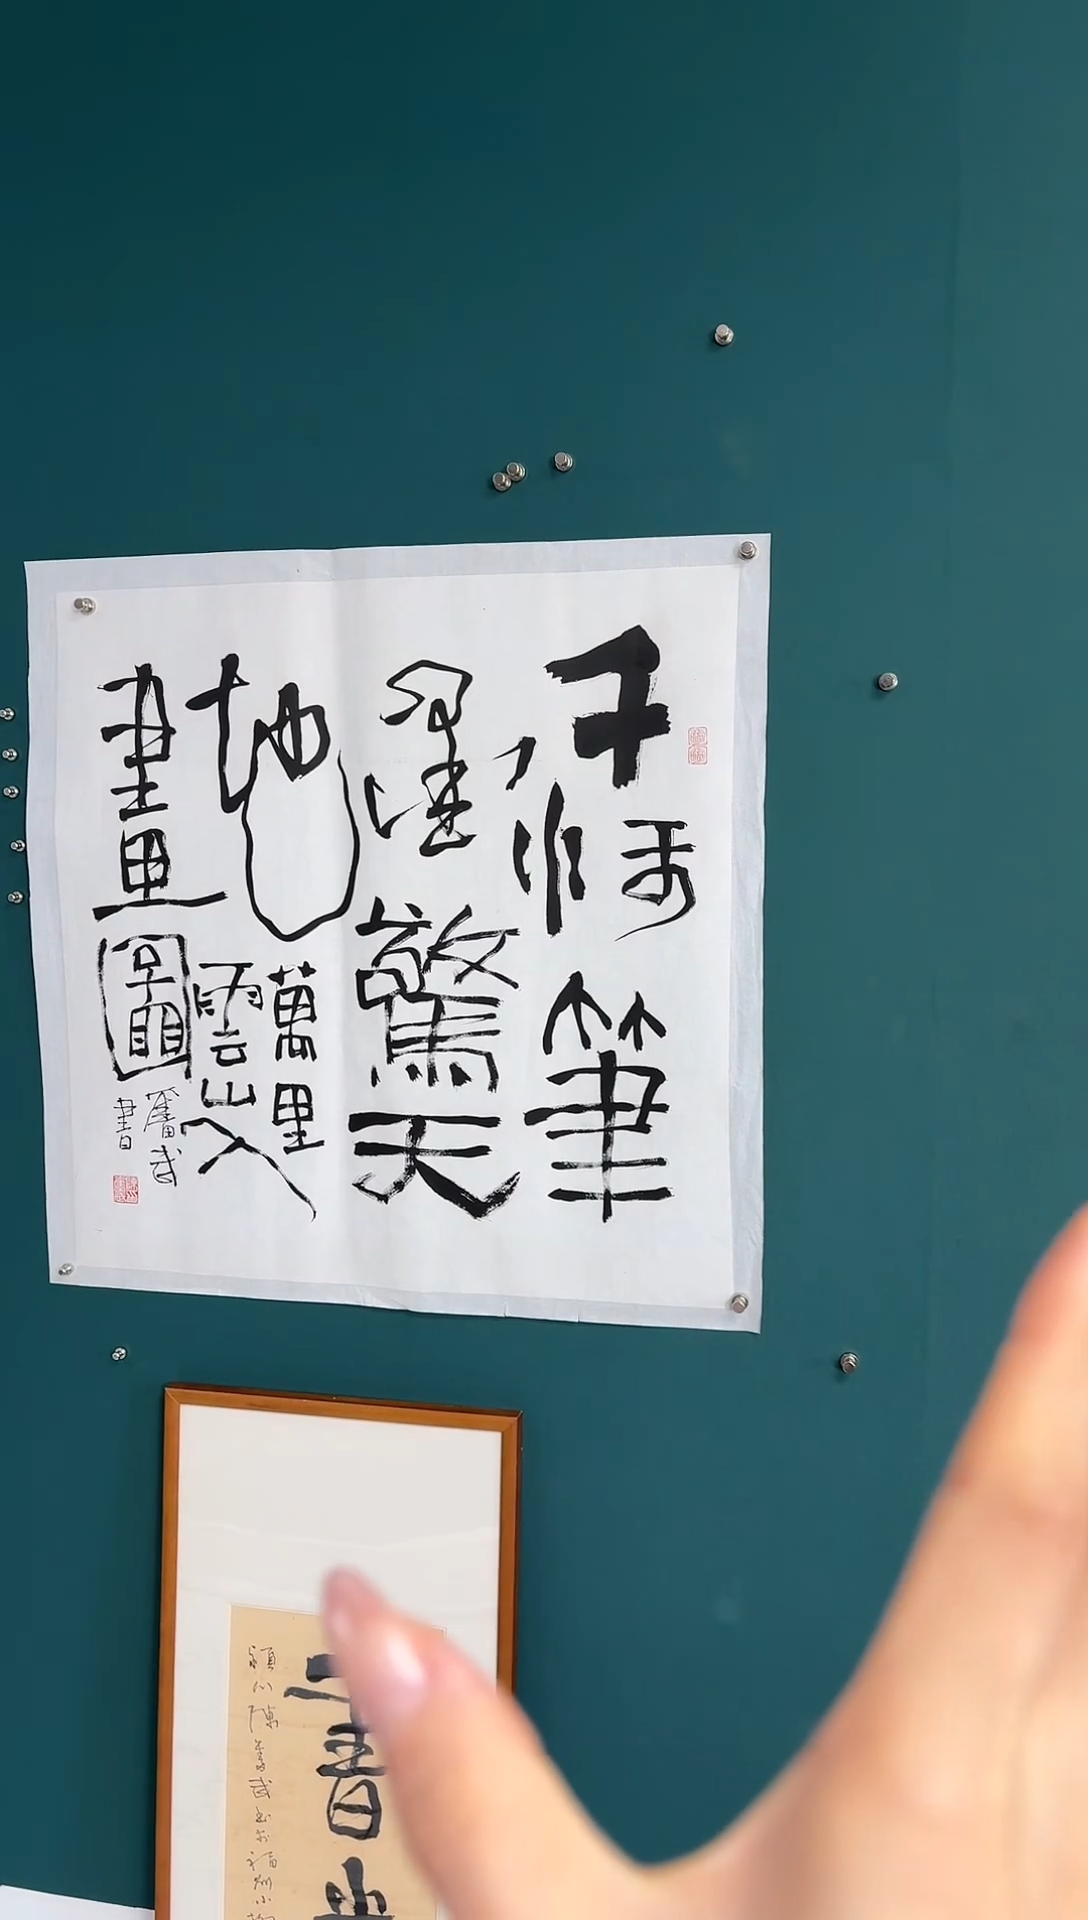 千秋筆
墨驚天
地
萬里
雲山入
畫圖
奮武
書
書
陳奮武書於福州小